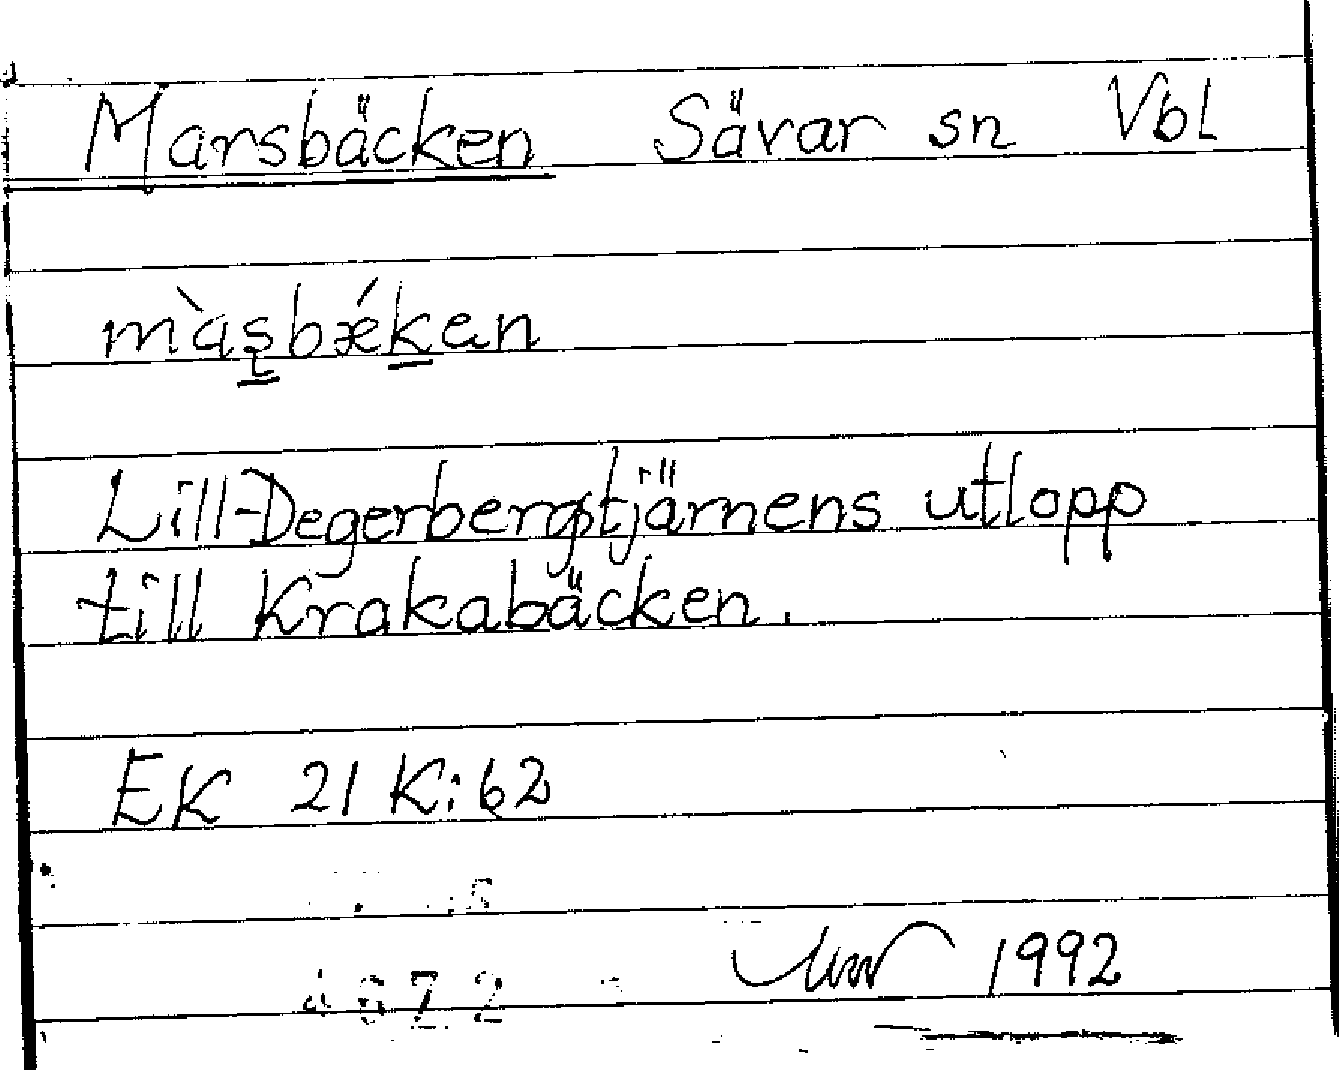 Marsbäcken Sävar sn Vbl
màs̨bǽken
Lill-Degerbergstjärnens utlopp
till Krakabäcken.
EK 21 K:62
1992